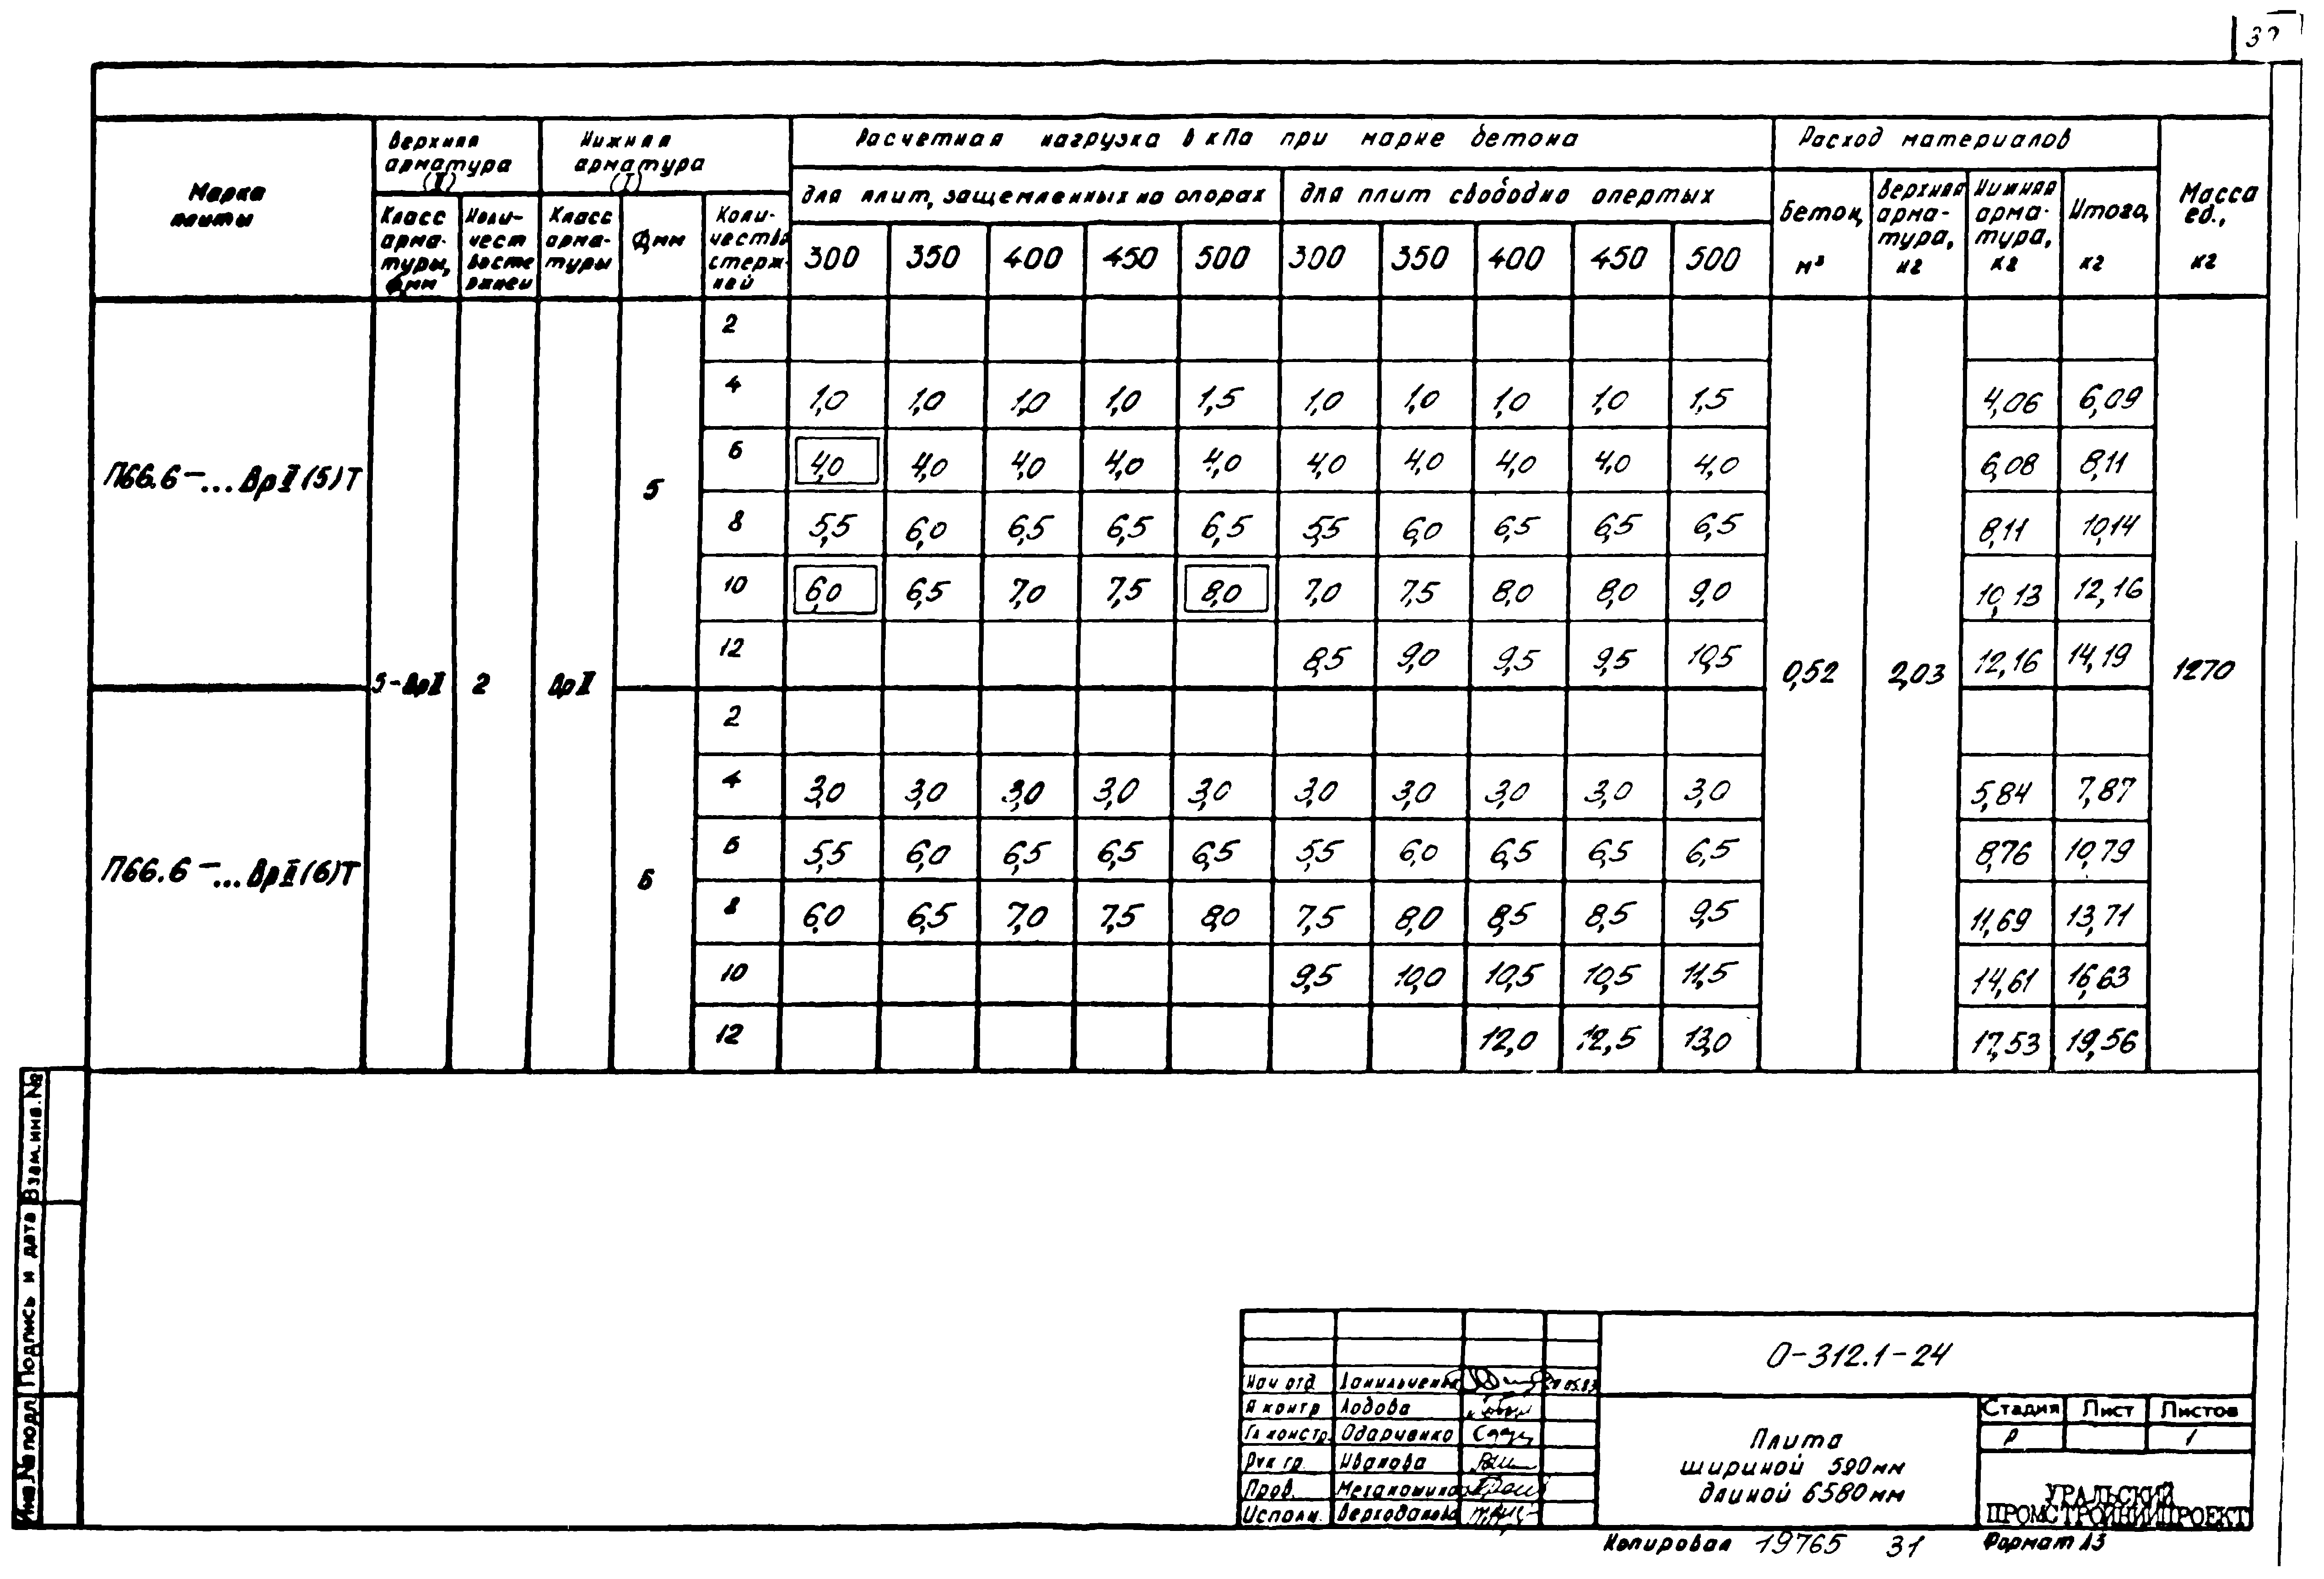 Марка плиты
Верхняя арматура (II)
Нижняя арматура (I)
Расчетная нагрузка в кПа при марке бетона
Расход материалов
Масса ед., кг
для плит, защемленных на опорах
для плит свободно опертых
Класс арматуры, Ф, мм
Количество стержней
Класс арматуры
Ф, мм
Количество стержней
300 350 400 450 500 300 350 400 450 500
Бетон, м³
Верхняя арматура, кг
Нижняя арматура, кг
Итого, кг
П66.6–...ВрII(5)Т
5-ВрII 2 ВрII 5
0,52 2,03 1270
2
4 1,0 1,0 1,0 1,0 1,5 1,0 1,0 1,0 1,0 1,5 4,06 6,09
6 4,0 4,0 4,0 4,0 4,0 4,0 4,0 4,0 4,0 4,0 6,08 8,11
8 5,5 6,0 6,5 6,5 6,5 5,5 6,0 6,5 6,5 6,5 8,11 10,14
10 6,0 6,5 7,0 7,5 8,0 7,0 7,5 8,0 8,0 9,0 10,13 12,16
12 8,5 9,0 9,5 9,5 10,5 12,16 14,19
П66.6–...ВрII(6)Т
6
2
4 3,0 3,0 3,0 3,0 3,0 3,0 3,0 3,0 3,0 3,0 5,84 7,87
6 5,5 6,0 6,5 6,5 6,5 5,5 6,0 6,5 6,5 6,5 8,76 10,79
8 6,0 6,5 7,0 7,5 8,0 7,5 8,0 8,5 8,5 9,5 11,69 13,71
10 9,5 10,0 10,5 10,5 11,5 14,61 16,63
12 12,0 12,5 13,0 17,53 19,56
Взам.инв.№
Подпись и дата
Инв.№ подл
О-312.1-24
Нач отд Данильченко
Н контр Лодова
Гл констр. Одарченко
Рук гр. Иванова
Пров.
Исполн.
Плита
шириной 590мм
длиной 6580мм
Стадия Лист Листов
Р 1
УРАЛЬСКИЙ
ПРОМСТРОЙНИИПРОЕКТ
Копировал 19765 31 Формат А3